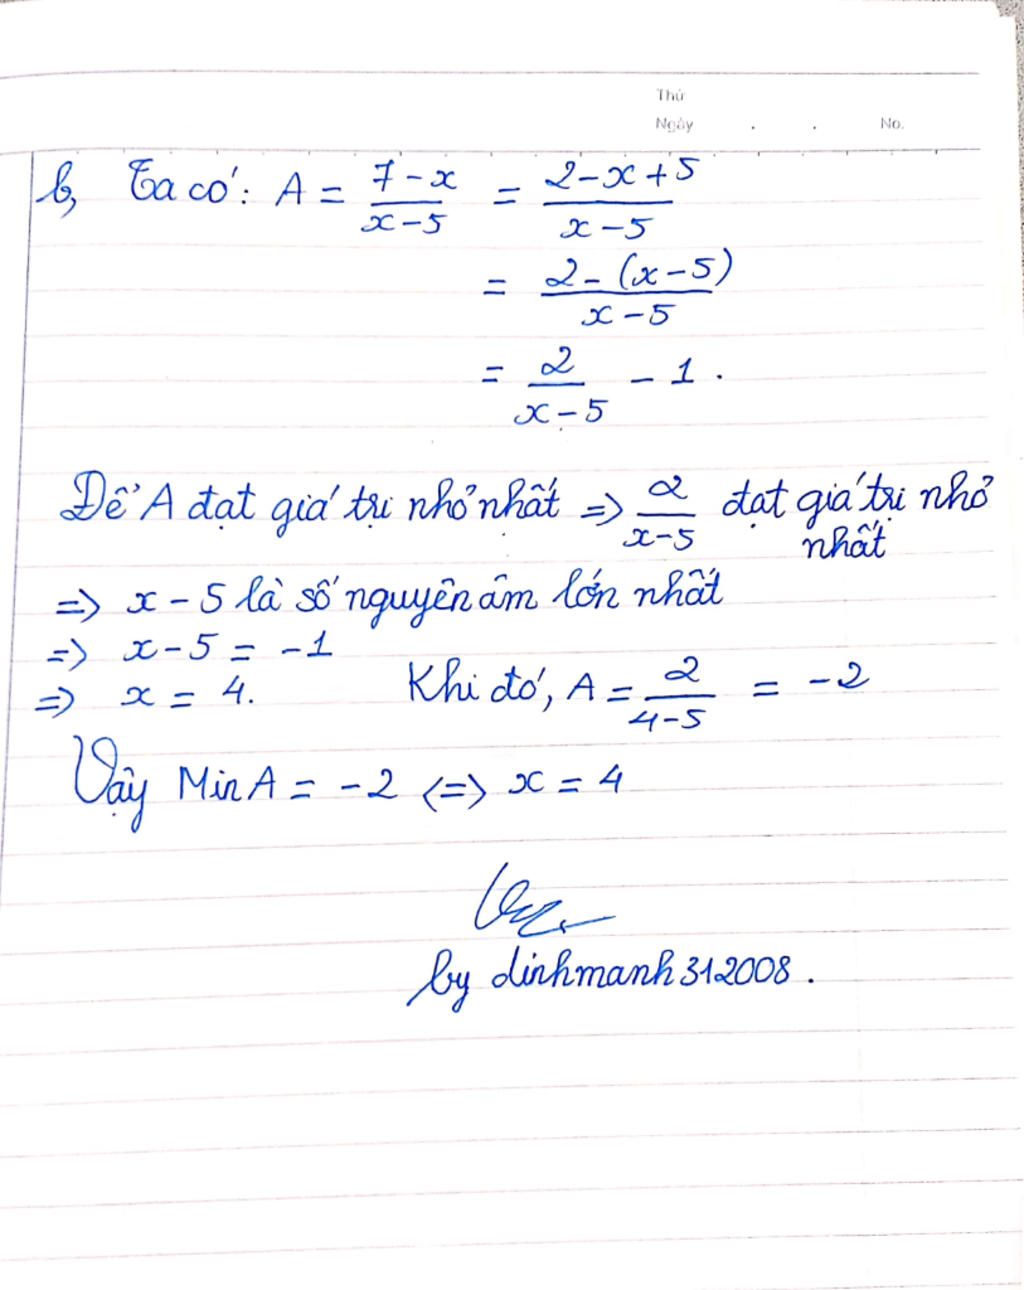 Thứ
Ngày . . No.
b, Ta có: A = \frac{7-x}{x-5} = \frac{2-x+5}{x-5}
= \frac{2-(x-5)}{x-5}
= \frac{2}{x-5} - 1.
Để A đạt giá trị nhỏ nhất => \frac{2}{x-5} đạt giá trị nhỏ
nhất
=> x - 5 là số nguyên âm lớn nhất
=> x - 5 = -1
=> x = 4. Khi đó, A = \frac{2}{4-5} = -2
Vậy Min A = -2 <=> x = 4
by dinhmanh312008.